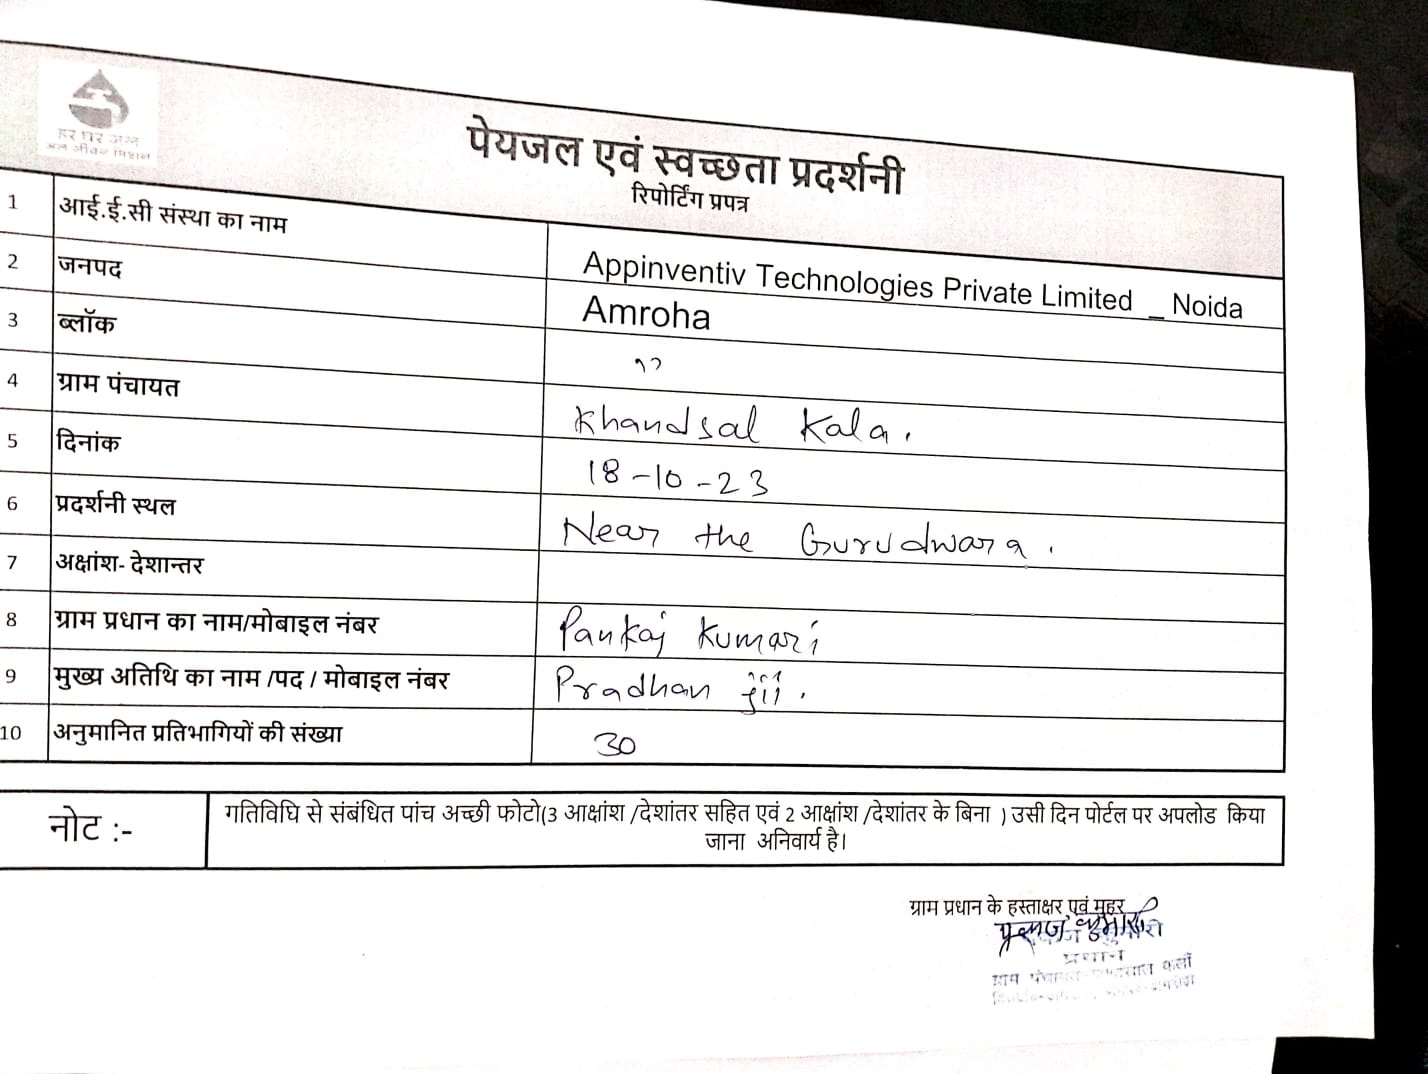 हर घर जल
जल जीवन मिशन
पेयजल एवं स्वच्छता प्रदर्शनी
रिपोर्टिंग प्रपत्र
1 आई.ई.सी संस्था का नाम Appinventiv Technologies Private Limited _ Noida
2 जनपद Amroha
3 ब्लॉक "
4 ग्राम पंचायत Khandsal Kala.
5 दिनांक 18-10-23
6 प्रदर्शनी स्थल Near the Gurudwara.
7 अक्षांश- देशान्तर
8 ग्राम प्रधान का नाम/मोबाइल नंबर Pankaj Kumari
9 मुख्य अतिथि का नाम /पद / मोबाइल नंबर Pradhan jii.
10 अनुमानित प्रतिभागियों की संख्या 30
नोट :- गतिविधि से संबंधित पांच अच्छी फोटो(3 आक्षांश /देशांतर सहित एवं 2 आक्षांश /देशांतर के बिना ) उसी दिन पोर्टल पर अपलोड किया
जाना अनिवार्य है।
ग्राम प्रधान के हस्ताक्षर एवं मुहर
प्रधान
ग्राम कलाँ